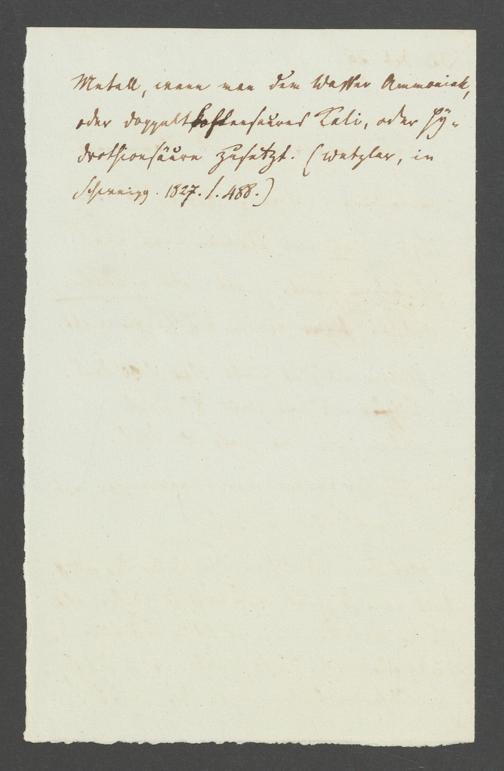 Metall, wenn man dem Wasser Ammoniak,
oder doppeltkohlensaures Kali, oder Hy-
drothionsäure zusetzt. (Wetzlar, in
Schweigg. 1827. 1. 488.)